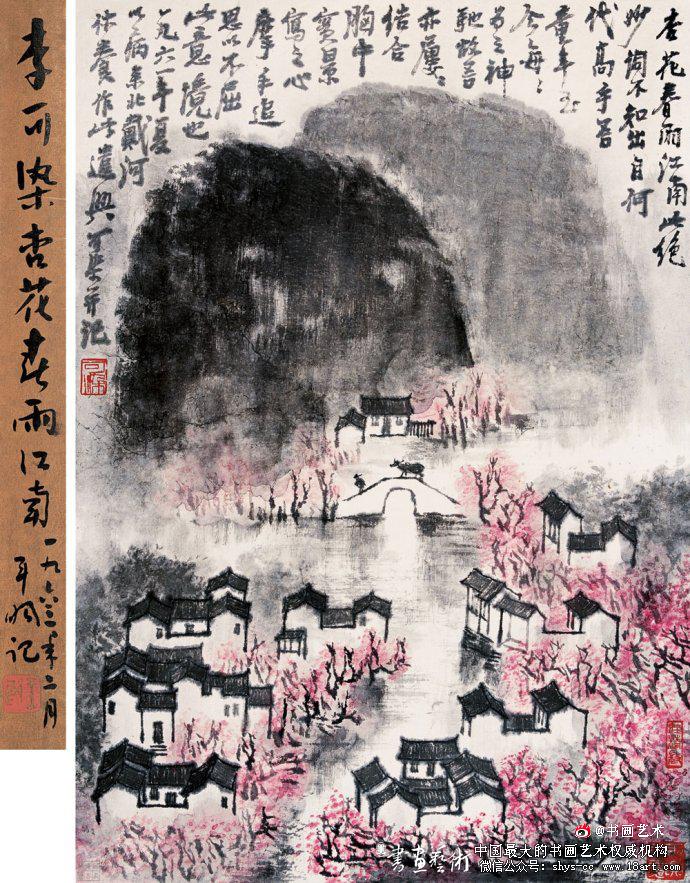 杏花春雨江南此絕
妙詞不知出自何
代高手吾
童年至
今每每
為之神
馳故吾
亦屢屢
结合
胸中
實景
寫之心
摹手追
思以不屈
此意境也
一九六一年夏
以病来北戴河
休養作此遣興可染并记
李可染杏花春雨江南
一九六三年二月
记
@书画艺术
書画藝術
中国最大的书画艺术权威机构
微信公众号：shys-cc www.18art.com